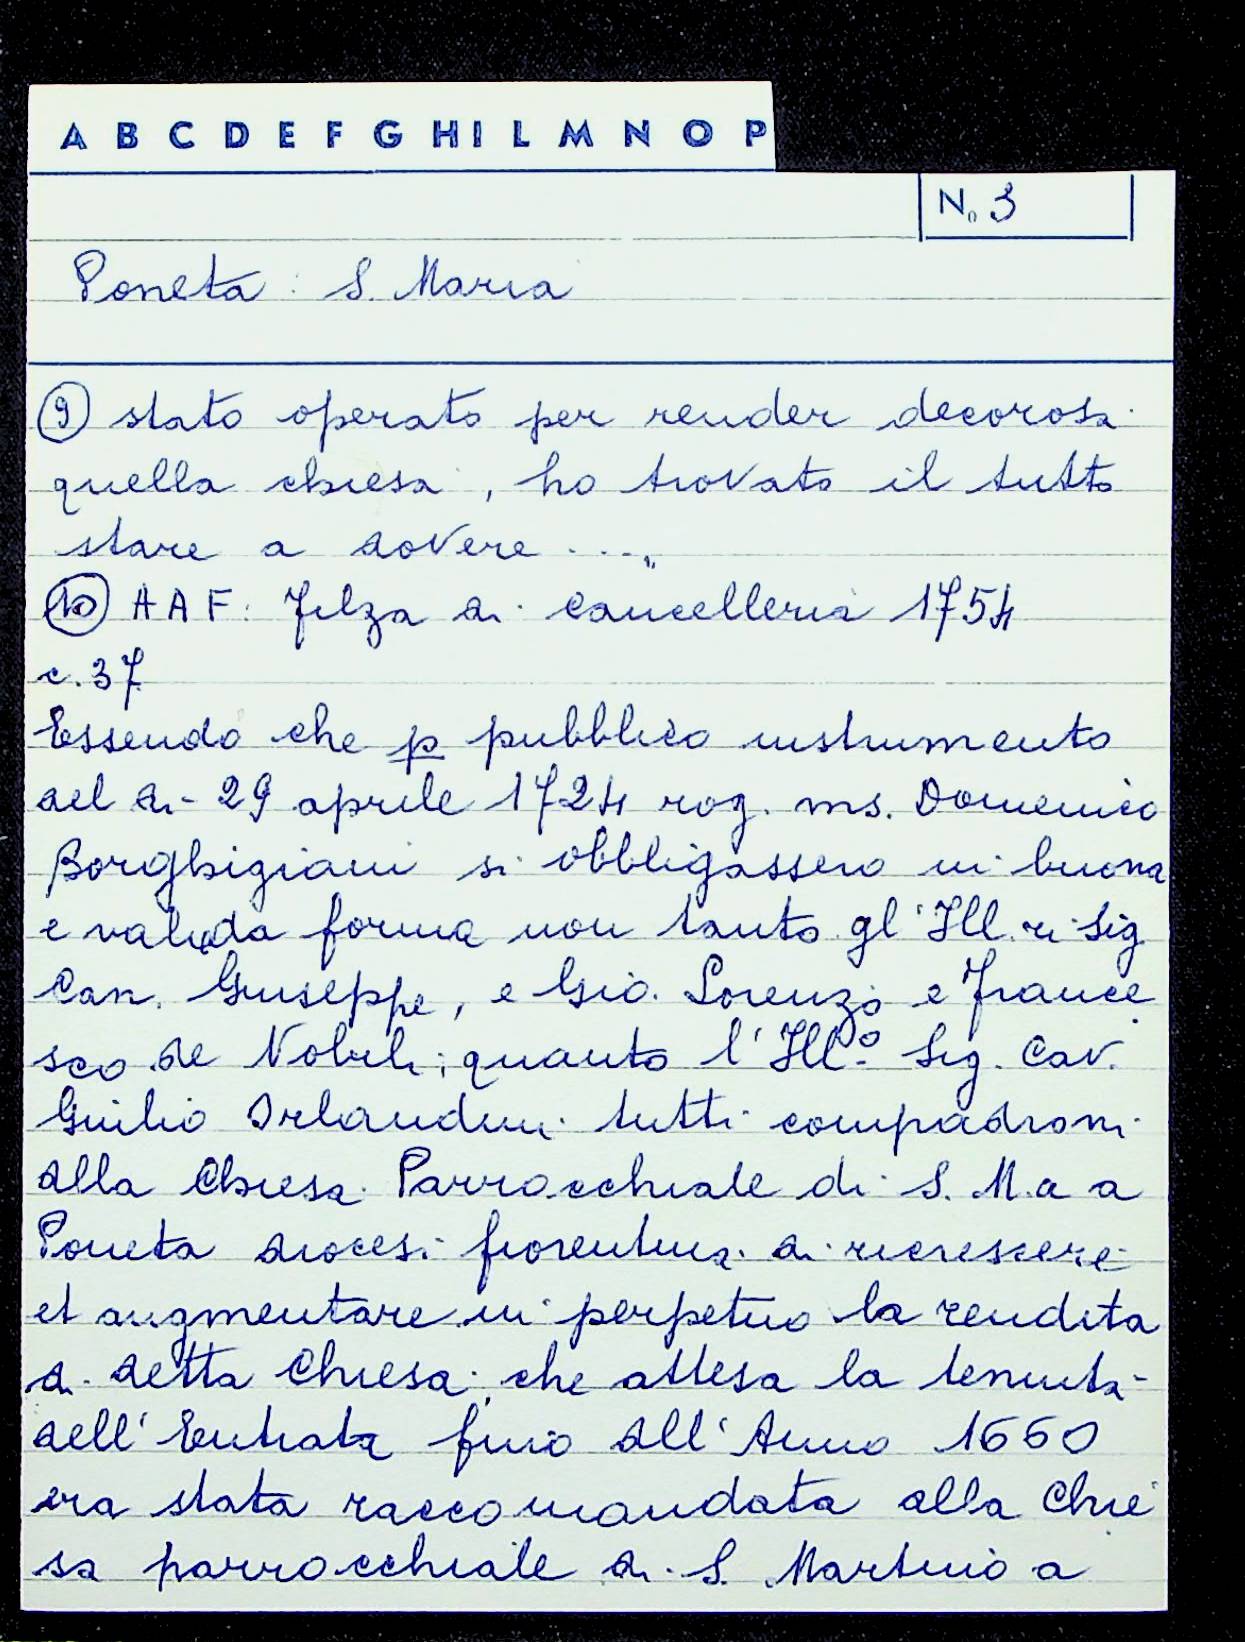 A B C D E F G H I L M N O P
N. 3
Poneta : S. Maria
9 stato operato per render decorosa
quella chiesa, ho trovato il tutto
stare a dovere ...."
10 AAF: Filza di cancelleria 1754
c. 37
Essendo che p pubblico instrumento
del di 29 aprile 1724 rog. ms. Domenico
Borghigiani si obbligassero in buona
e valida forma non tanto gl'Ill.ri Sig
Can. Giuseppe, e Gio. Lorenzo e France
sco de Nobili; quanto l'Ill.o Sig. Cav.
Giulio Orlandini tutti compadroni
alla Chiesa Parrocchiale di S. M.a a
Poneta diocesi fiorentina di ricrescere
et augmentare in perpetuo la rendita
di detta Chiesa; che attesa la tenuta
dell'Entrata fino all'Anno 1660
era stata raccomandata alla Chie
sa parrocchiale di S. Martino a